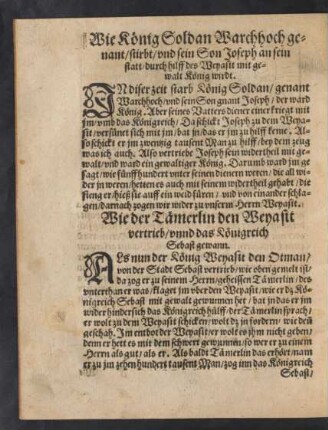 Wie König Soldan Warchhoch ge-
nant/ stirbt/ vnd sein Son Joseph an sein
statt/ durch hilff des Weyasit mit ge-
walt König wirdt.
IN diser zeit starb König Soldan/ genant
Warchhoch/ vnd sein Son gnant Joseph/ der ward
König. Aber seines Vatters diener einer kriegt mit
jm/ vmb das Königreich/ Da schickt Joseph zu dem Weya-
sit/ versünet sich mit jm/ bat jn/ das er jm zu hilff keme. Al-
so schickt er jm zwentzig tausent Man zu hilff/ bey dem zeug
was ich auch. Also vertriebe Joseph sein widertheil mit ge-
walt/ vnd ward ein gewaltiger König. Darumb ward jm ge-
sagt/ wie fünffhundert vnter seinen dienern weren/ die all wi-
der jn weren/ hetten es auch mit seinem widertheil gehabt/ die
fieng er/ hieß sie auff ein weld füren/ vnd von einander schla-
gen/ darnach zogen wir wider zu vnserm Herrn Weyasit.
Wie der Tämerlin den Weyasit
vertrieb/ vnnd das Königreich
Sebast gewann.
ALs nun der König Weyasit den Otman/
von der Stadt Sebast vertrieb/ wie oben gemelt ist/
da zog er zu seinem Herrn/ geheissen Tämerlin/ des
vnterthan er was/ klaget jm vber den Weyasit/ wie er dz Kö-
nigreich Sebast mit gewalt gewunnen her/ bat jn das er jm
wider hindersich das Königreich hülff/ der Tämerlin sprach/
er wolt zu dem Weyasit schicken/ wolt dz zu fordern/ wie deñ
geschah. Im entbot der Weyasit/ er wolt es jhm nicht geben/
denn er hett es mit dem schwert gewunnen/ so wer er zu einem
Herrn als gut/ als er. Als baldt Tämerlin das erhört/ nam
er zu jm zehenhundert tausent Man/ zog inn das Königreich
Sebast/